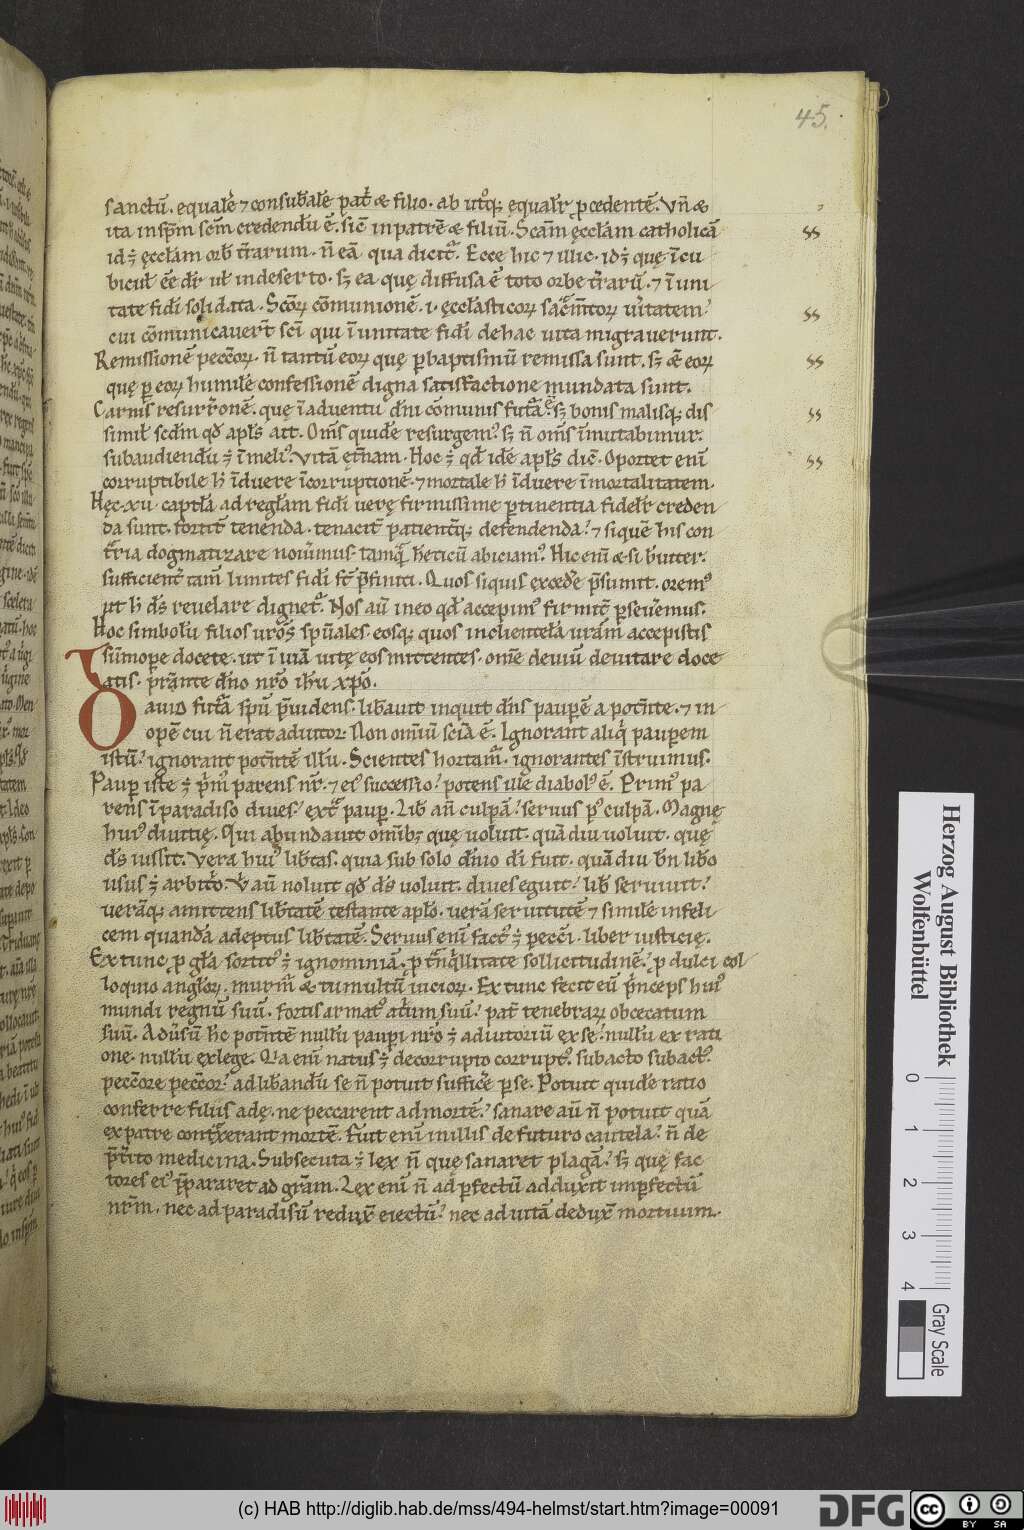 45.
sanctū. equalē ⁊ consubꝉalē pat̄ & filio. ab utͦq; ęqualit̄ ꝓcedentē. Vn̄ &
ita in sp̄m sc̄m credendū ē. sic̄ in patrē & filiū. Scām ęccłam catholicā
id ÷ ęccłam orb̄ t̄rarum. n̄ eā qua dicit᷑. Ecce hic ⁊ illic. id ÷ quę ī cu
bicuł ēē dr̄ uł in deserto. sꝫ ea quę diffusa ē toto orbe t̄rarū. ⁊ ī uni
tate fidī solidata. Scōꝝ cōmunionē. ꝉ. ęccłasticoꝝ sac̄m̄toꝝ ūitatem.
cui cōmunicauer̄t sc̄i qui ī unitate fidī de hac uita migrauerunt.
Remissionē peccōꝝ. n̄ tantū eoꝝ quę ꝑ baptismū remissa sunt. sꝫ & eoꝝ
quę ꝑ eoꝝ humilē confessionē digna satisfactione mundata sunt.
Carnis resurr̄onē. quę ī aduentu dn̄i cōmunis fut̄a ē. sꝫ bonis malisq; dis
simił scd̄m qd̄ apłs ait. Om̄s quidē resurgem᷒. sꝫ n̄ om̄s īmutabimur.
subaudiendū ÷ ī meli᷒. Vitā ęt̄nam. Hoc ÷ qd̄ idē apłs dic̄. Oportet enī
corruptibile h̄ īduere īcorruptionē. ⁊ mortale h̄ īduere īmortalitatem.
Hęc .xu. capt̄la ad regłam fidī uerę firmissime ꝑtinentia fidelit̄ creden
da sunt. fortit̄ tenenda. tenacit̄ patient̄q; defendenda. ⁊ siquē his con
t̄ria dogmatizare nouim᷒. tamq̄ h̄eticū abiciam᷒. Hic enī & si breuiter.
sufficient̄ tam̄ limites fidī st̄ p̄finiti. Quos siquis excedē p̄sumit. orem᷒
ut h̄ d̄s reuelare dignet᷑. Nos aū in eo qd̄ accepim᷒ firmit̄ ꝑseuerem᷒.
Hoc simbolū filios uros sp̄uales. eosq; quos in clientelā uram accepistis
sūmope docete. ut ī uiā uitę eos mittentes. om̄e deuiū deuitare doce
atis. p̄stante dn̄o nr̄o ih̄u xp̄o.
Dauid fut̄a spū p̄uidens. lib̄auit inquit dn̄s pauperē a potn̄te. ⁊ in
opē cui n̄ erat adiutor. Non omniū scīa ē. Ignorant aliq̄ pauperem
istū. ignorant potn̄tē illū. Scientes hortam᷑. ignorantes īstruimus.
Pauꝑ iste ÷ p̄m᷒ parens nr̄. ⁊ ei᷒ successio. potens ille diabol᷒ ē. Prim᷒ pa
rens ī paradiso diues. ext̄ pauꝑ. Lib̄ an̄ culpā. seruus p᷒ culpā. Magnę
hui᷒ diuitię. Qui abundauit omnib; quę uoluit. quādiu uoluit. quę
d̄s iussit. Vera hui᷒ lib̄tas. quia sub solo dn̄io dī fuit. quādiu bn̄ lib̄o
usus ÷ arbit̄o. Ū aū noluit qd̄ d̄s uoluit. diues eguit. lib̄ seruiuit.
uerāq; amittens lib̄tatē testante apło. uerā seruitutē ⁊ similē infeli
cem quandā adeptus lib̄tatē. Seruus enī fact᷒ ÷ peccī. liber iusticię.
Ex tunc ꝓ głā sortit᷒ ÷ ignominiā. ꝓ tn̄q̄llitate sollicitudinē. ꝓ dulci col
loquio angłoꝝ. murm̄ & tumultū uicioꝝ. Ex tunc fecit eū p̄nceps hui᷒
mundi regnū suū. fortis armat᷒ at̄ium suū. pat̄ tenebraꝝ obcecatum
suū. Aduersū hc̄ potn̄tē nullū pauꝑi nr̄o ÷ adiutoriū ex se. nullū ex rati
one. nullū ex lege. Q̄a enī natus ÷ de corrupto corrupt᷒. subacto subact᷒.
peccōre peccōr. ad lib̄andū se n̄ potuit sufficē ꝑ se. Potuit quidē ratio
conferre filiis adę. ne peccarent ad mortē. sanare aū n̄ potuit quā
ex patre contx̄erant mortē. Fuit enī in illis de futuro cautela. n̄ de
p̄t̄ito medicina. Subsecuta ÷ lex n̄ que sanaret plagā. sꝫ quę fac
tores ei᷒ p̄pararet ad gr̄am. Lex enī n̄ ad ꝑfectū adduxit imꝑfectū
nr̄m. nec ad paradisū redux̄ eiectū. nec ad uitā redux̄ mortuum.
Herzog August Bibliothek
Wolfenbüttel
0 1 2 3 4
Gray Scale
(c) HAB http://diglib.hab.de/mss/494-helmst/start.htm?image=00091
DFG
cc BY SA